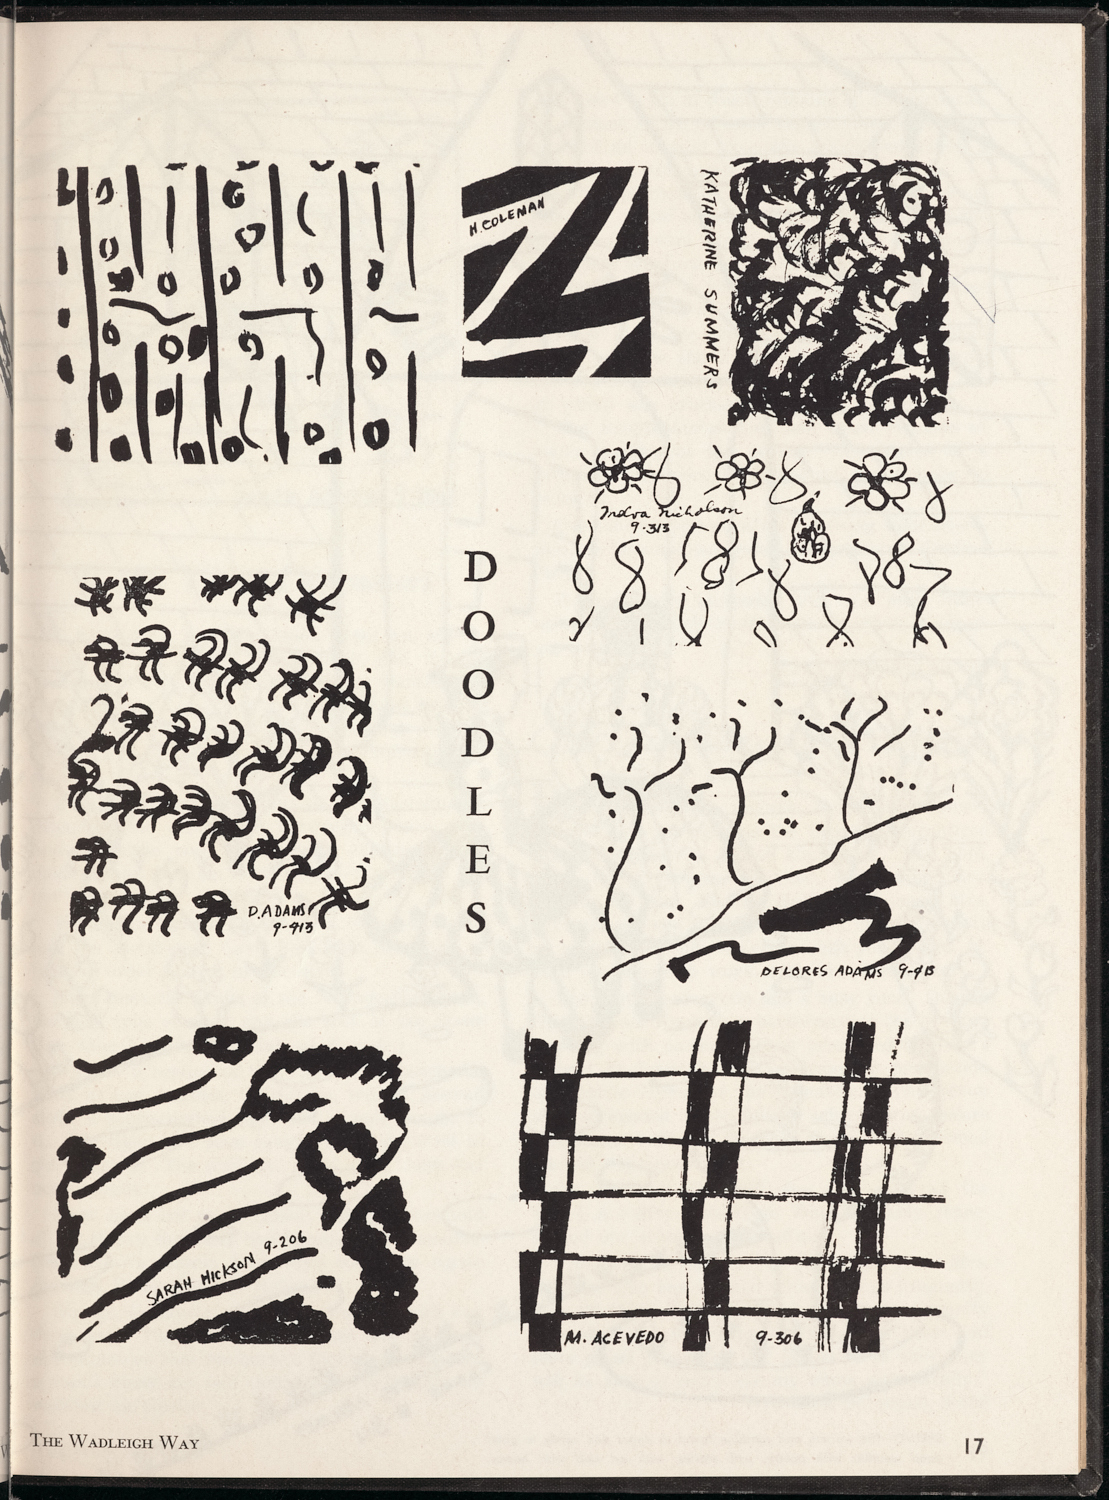 H. COLEMAN
KATHERINE SUMMERS
Nicholson
9-313
DOODLES
D. ADAMS
9-413
DELORES ADAMS 9-413
SARAH HICKSON 9-206
M. ACEVEDO 9-306
THE WADLEIGH WAY
17